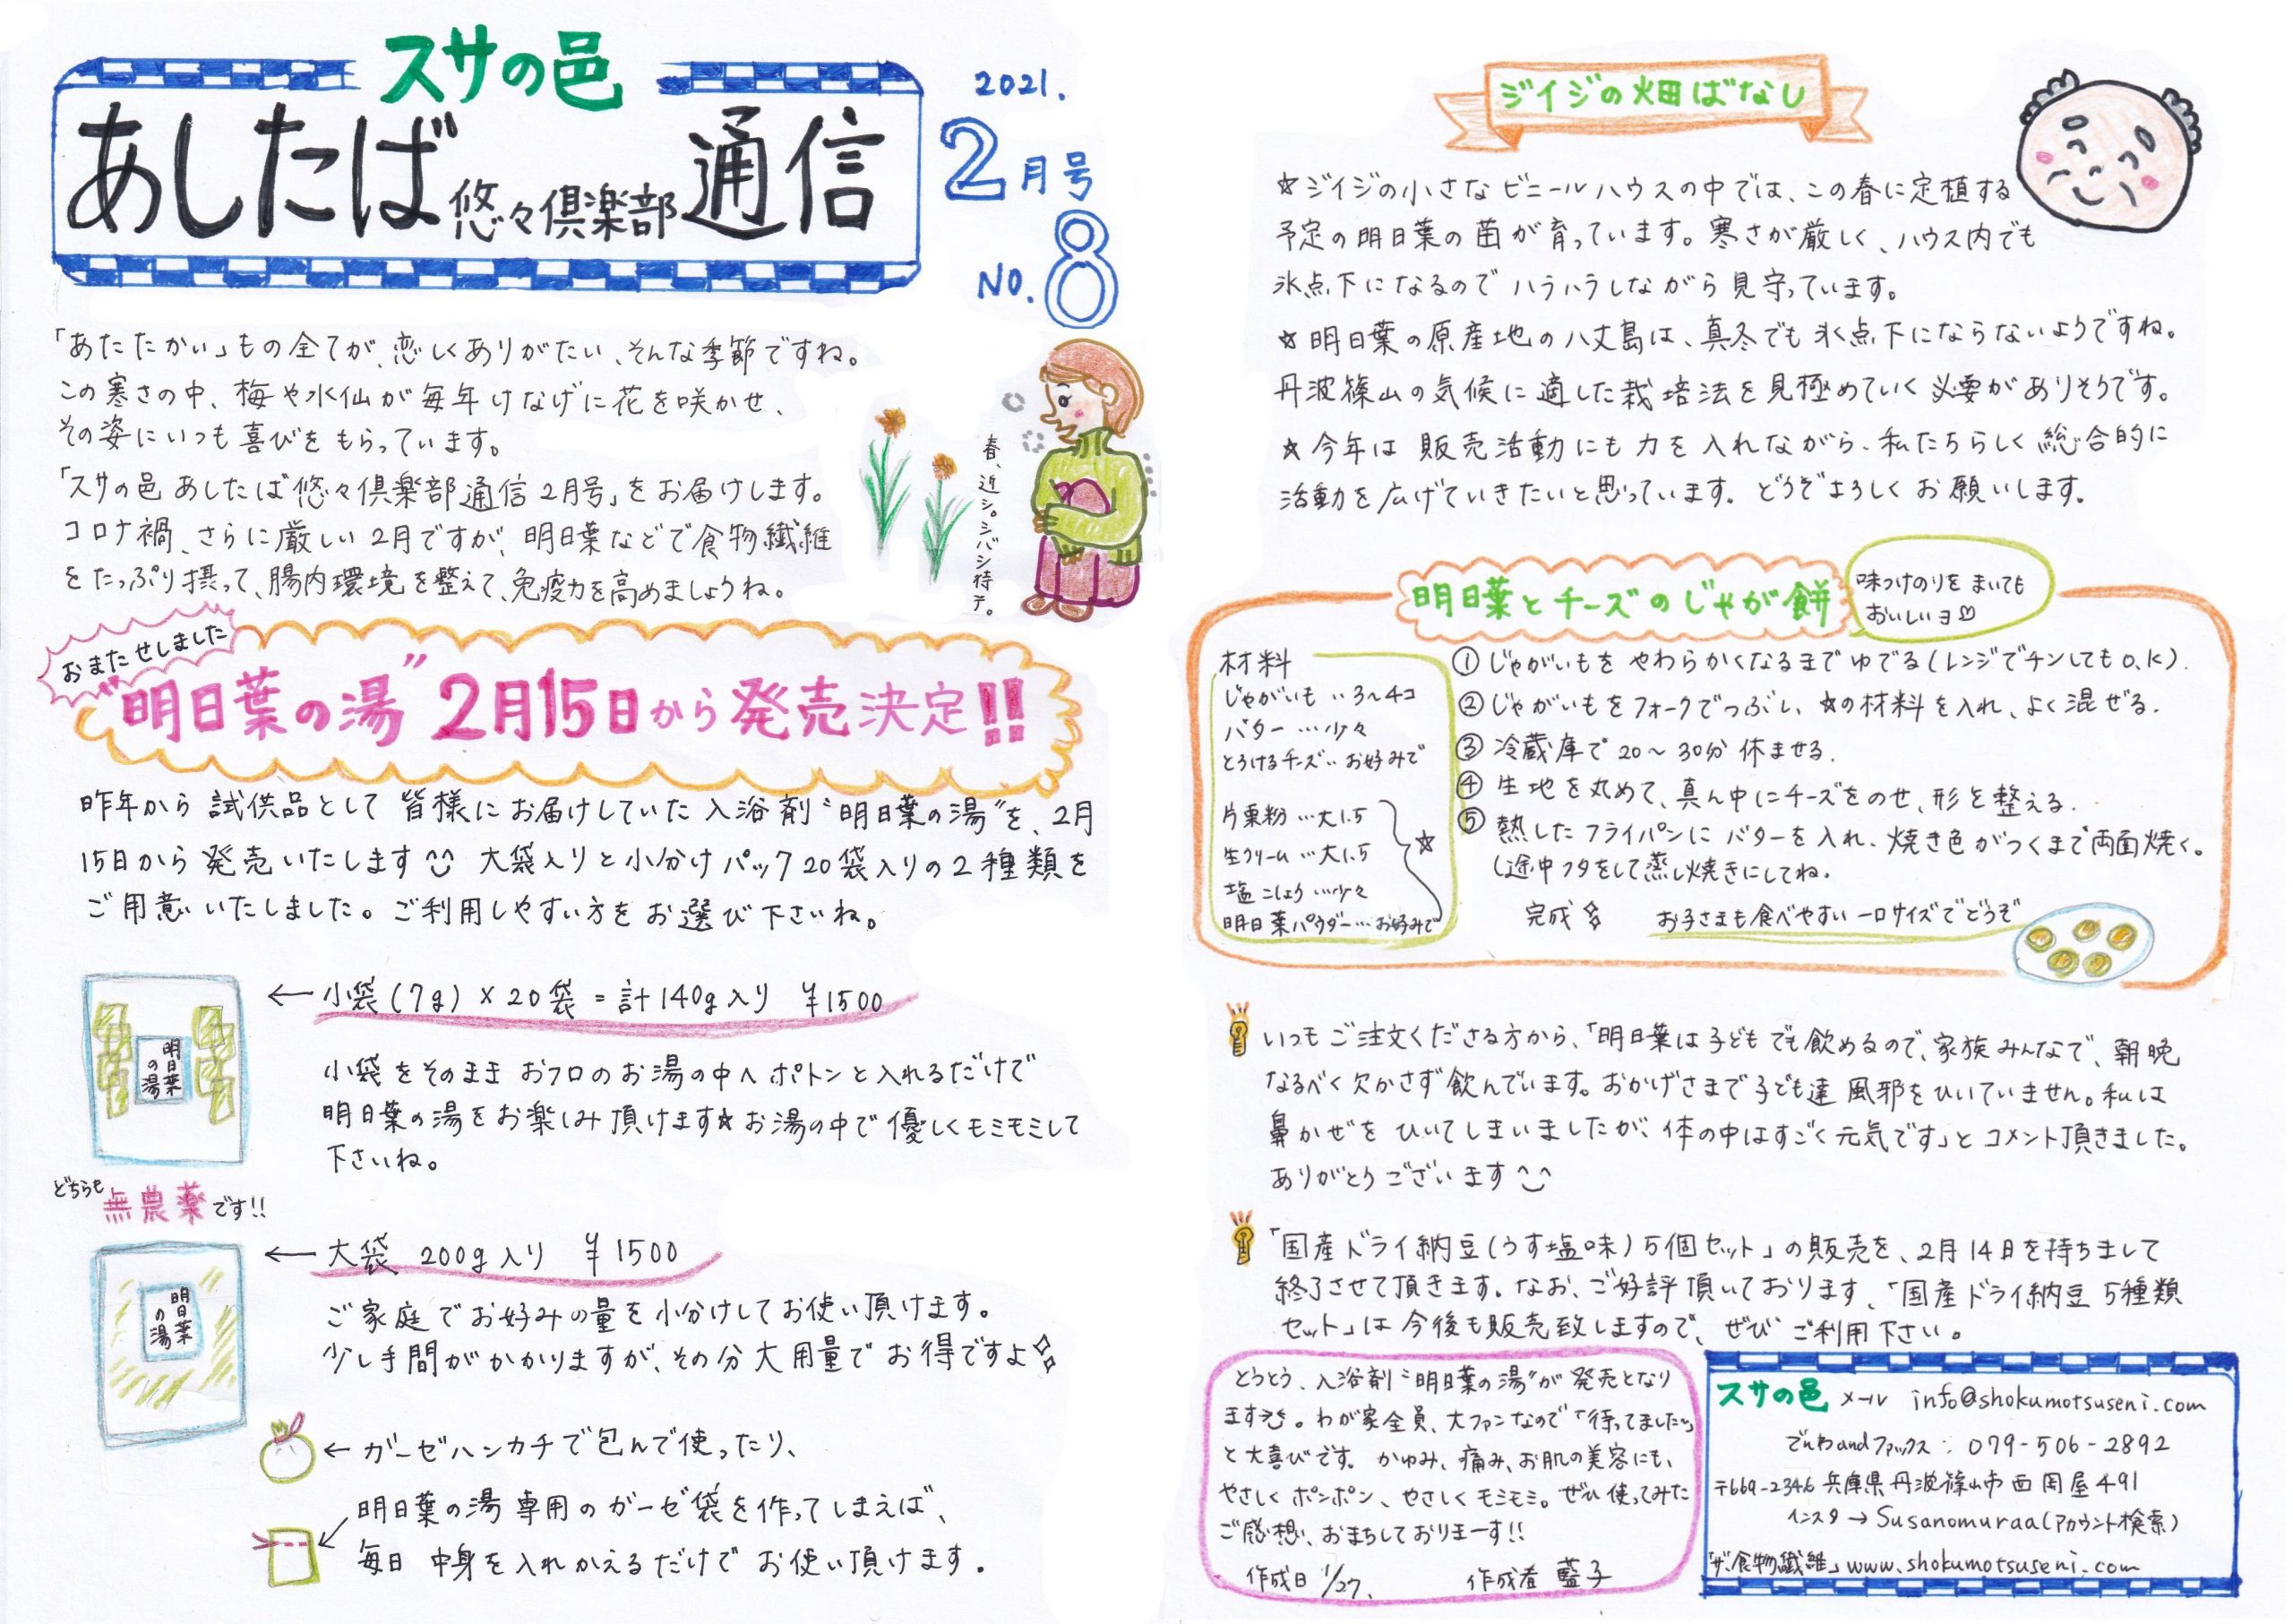 スサの邑
あしたば悠々倶楽部通信
2021.
2月号
NO.8
「あたたかい」もの全てが、恋しくありがたい、そんな季節ですね。
この寒さの中、梅や水仙が毎年けなげに花を咲かせ、
その姿にいつも喜びをもらっています。
「スサの邑 あしたば悠々倶楽部通信2月号」をお届けします。
コロナ禍、さらに厳しい2月ですが、明日葉などで食物繊維
をたっぷり摂って、腸内環境を整えて、免疫力を高めましょうね。
春、近シ。シバシ待テ。
おまたせしました
"明日葉の湯"2月15日から発売決定!!
昨年から試供品として皆様にお届けしていた入浴剤"明日葉の湯"を、2月
15日から発売いたします 大袋入りと小分けパック20袋入りの2種類を
ご用意いたしました。ご利用しやすい方をお選び下さいね。
明日葉の湯
←小袋(7g)×20袋=計140g入り ¥1500
小袋をそのままおフロのお湯の中へポトンと入れるだけで
明日葉の湯をお楽しみ頂けます☆お湯の中で優しくモミモミして
下さいね。
どちらも無農薬です!!
明日葉の湯
←大袋 200g入り ¥1500
ご家庭でお好みの量を小分けしてお使い頂けます。
少し手間がかかりますが、その分大用量でお得ですよ
←ガーゼハンカチで包んで使ったり、
明日葉の湯専用のガーゼ袋を作ってしまえば、
毎日中身を入れかえるだけでお使い頂けます。
ジイジの畑ばなし
☆ジイジの小さなビニールハウスの中では、この春に定植する
予定の明日葉の苗が育っています。寒さが厳しく、ハウス内でも
氷点下になるのでハラハラしながら見守っています。
☆明日葉の原産地の八丈島は、真冬でも氷点下にならないようですね。
丹波篠山の気候に適した栽培法を見極めていく必要がありそうです。
☆今年は販売活動にも力を入れながら、私たちらしく総合的に
活動を広げていきたいと思っています。どうぞよろしくお願いします。
明日葉とチーズのじゃが餅
味つけのりをまいても
おいしいヨ♡
材料
じゃがいも‥3〜4コ
バター…少々
とろけるチーズ‥お好みで
片栗粉…大1.5
生クリーム…大1.5
塩こしょう…少々
明日葉パウダー…お好みで
☆
①じゃがいもをやわらかくなるまでゆでる(レンジでチンしてもO.K).
②じゃがいもをフォークでつぶし、☆の材料を入れ、よく混ぜる.
③冷蔵庫で20〜30分休ませる.
④生地を丸めて、真ん中にチーズをのせ、形を整える.
⑤熱したフライパンにバターを入れ、焼き色がつくまで両面焼く。
途中フタをして蒸し焼きにしてね.
完成 お子さまも食べやすい一口サイズでどうぞ
いつもご注文くださる方から、「明日葉は子どもでも飲めるので、家族みんなで、朝晩
なるべく欠かさず飲んでいます。おかげさまで子ども達風邪をひいていません。私は
鼻かぜをひいてしまいましたが、体の中はすごく元気です」とコメント頂きました。
ありがとうございます
「国産ドライ納豆(うす塩味)5個セット」の販売を、2月14日を持ちまして
終了させて頂きます。なお、ご好評頂いております、「国産ドライ納豆5種類
セット」は今後も販売致しますので、ぜひご利用下さい。
とうとう、入浴剤"明日葉の湯"が発売となり
ます。わが家全員、大ファンなので「待ってました」
と大喜びです。かゆみ、痛み、お肌の美容にも、
やさしくポンポン、やさしくモミモミ。ぜひ使ってみた
ご感想、おまちしておりまーす!!
作成日 1/27、 作成者 藍子
スサの邑 メール info@shokumotsuseni.com
でんわandファックス: 079-506-2892
〒669-2346 兵庫県丹波篠山市西岡屋491
インスタ→Susanomuraa(アカウント検索)
「ザ.食物繊維」www.shokumotsuseni.com